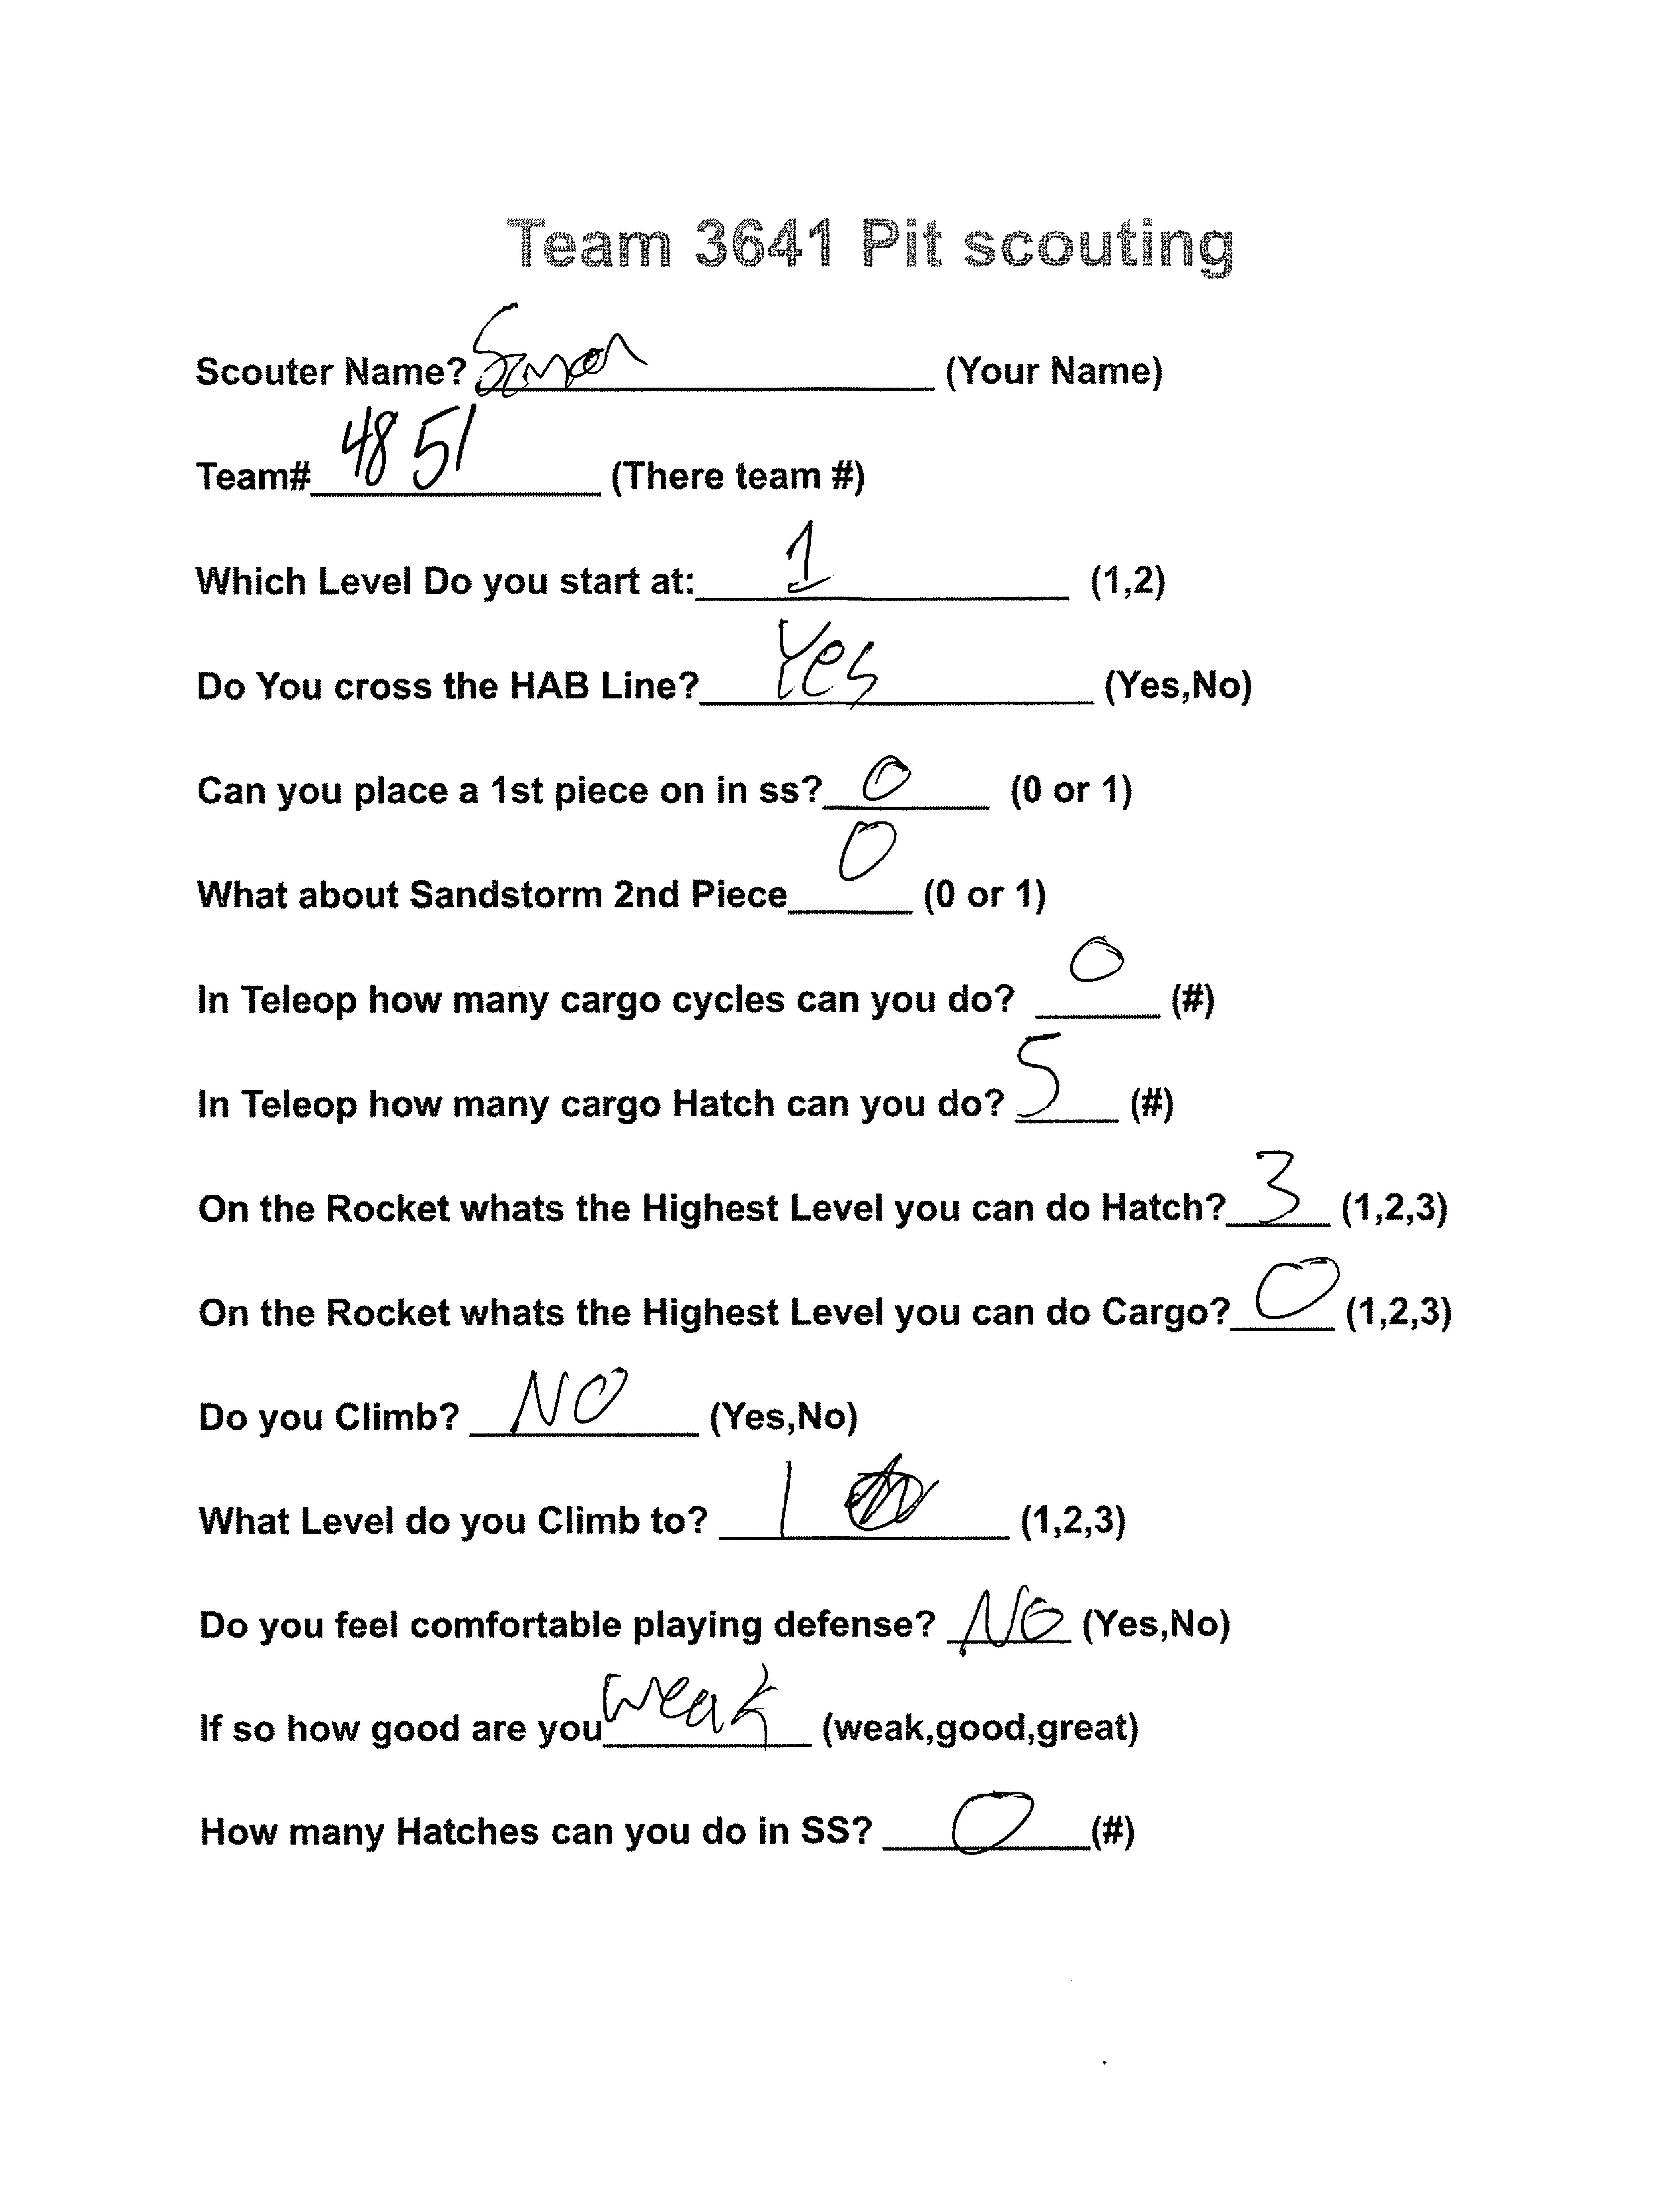 Team 3641 Pit scouting
Scouter Name? (Your Name)
Team# 4851 (There team #)
Which Level Do you start at: 1 (1,2)
Do You cross the HAB Line? Yes (Yes,No)
Can you place a 1st piece on in ss? 0 (0 or 1)
What about Sandstorm 2nd Piece 0 (0 or 1)
In Teleop how many cargo cycles can you do? 0 (#)
In Teleop how many cargo Hatch can you do? 5 (#)
On the Rocket whats the Highest Level you can do Hatch? 3 (1,2,3)
On the Rocket whats the Highest Level you can do Cargo? 0 (1,2,3)
Do you Climb? NO (Yes,No)
What Level do you Climb to? 1 (1,2,3)
Do you feel comfortable playing defense? NO (Yes,No)
If so how good are you weak (weak,good,great)
How many Hatches can you do in SS? 0 (#)